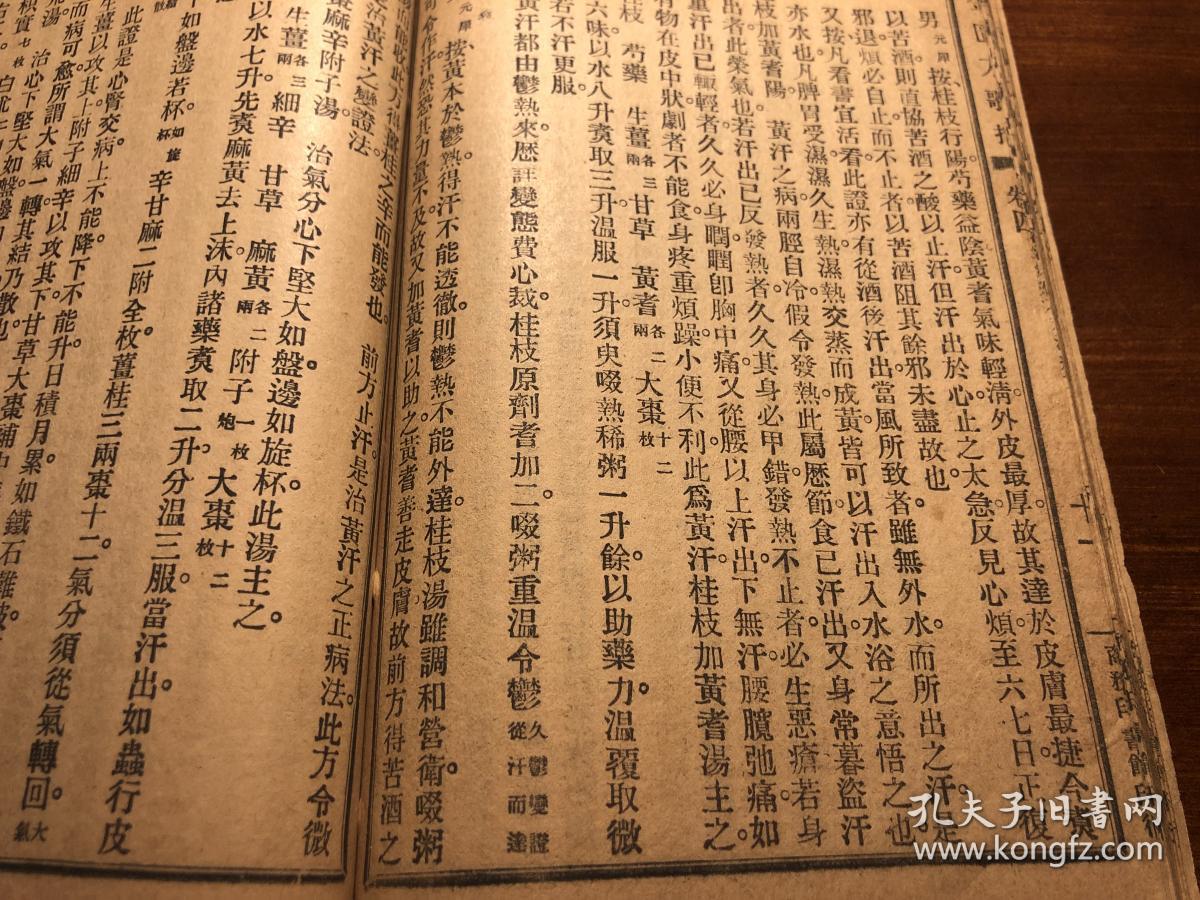 男元犀按桂枝行陽芍藥益陰黃耆氣味輕淸外皮最厚故其達於皮膚最捷今
以苦酒則直協苦酒之酸以止汗但汗出於心止之太急反見心煩至六七日正復
邪退煩必自止而不止者以苦酒阻其餘邪未盡故也
又按凡看書宜活看此證亦有從酒後汗出當風所致者雖無外水而所出之汗是
亦水也凡脾胃受濕濕久生熱濕熱交蒸而成黃皆可以汗出入水浴之意悟之也
黃汗之病兩脛自冷假令發熱此屬歷節食已汗出又身常暮盜汗
出者此榮氣也若汗出已反發熱者久久其身必甲錯發熱不止者必生惡瘡若身
重汗出已輒輕者久久必身瞤瞤卽胸中痛又從腰以上汗出下無汗腰髖弛痛如
有物在皮中狀劇者不能食身疼重煩躁小便不利此爲黃汗桂枝加黃耆湯主之
枝加黃耆陽
桂枝 芍藥 生薑各三兩 甘草 黃耆各二兩 大棗十二枚
六味以水八升煑取三升溫服一升須臾啜熱稀粥一升餘以助藥力溫覆取微
若不汗更服
黃汗都由鬱熱來歷詳變態費心裁桂枝原劑耆加二啜粥重溫令鬱久鬱變證從汗而達
元犀按黃本於鬱熱得汗不能透徹則鬱熱不能外達桂枝湯雖調和營衛啜粥
可令作汗然恐其力量不及故又加黃耆以助之黃耆善走皮膚故前方得苦酒之
而能收此方得薑桂之辛而能發也 前方止汗是治黃汗之正病法此方令微
治黃汗之變證法
棗麻辛附子湯 治氣分心下堅大如盤邊如旋杯此湯主之
生薑各三兩 細辛 甘草 麻黃各二兩 附子一枚炮 大棗十二枚
以水七升先煑麻黃去上沫內諸藥煑取二升分溫三服當汗出如蟲行皮
如盤邊若杯如旋杯 辛甘麻二附全枚薑桂三兩棗十二氣分須從氣轉回大氣
此證是心腎交病上不能降下不能升日積月累如鐵石難
生薑以攻其上附子細辛以攻其下甘草大棗補中
而病可愈所謂大氣一轉其結乃散也
治心下堅大如盤邊
枳實七枚 白朮二
卷四
十一
商務印書館印行
孔夫子旧書网
www.kongfz.com